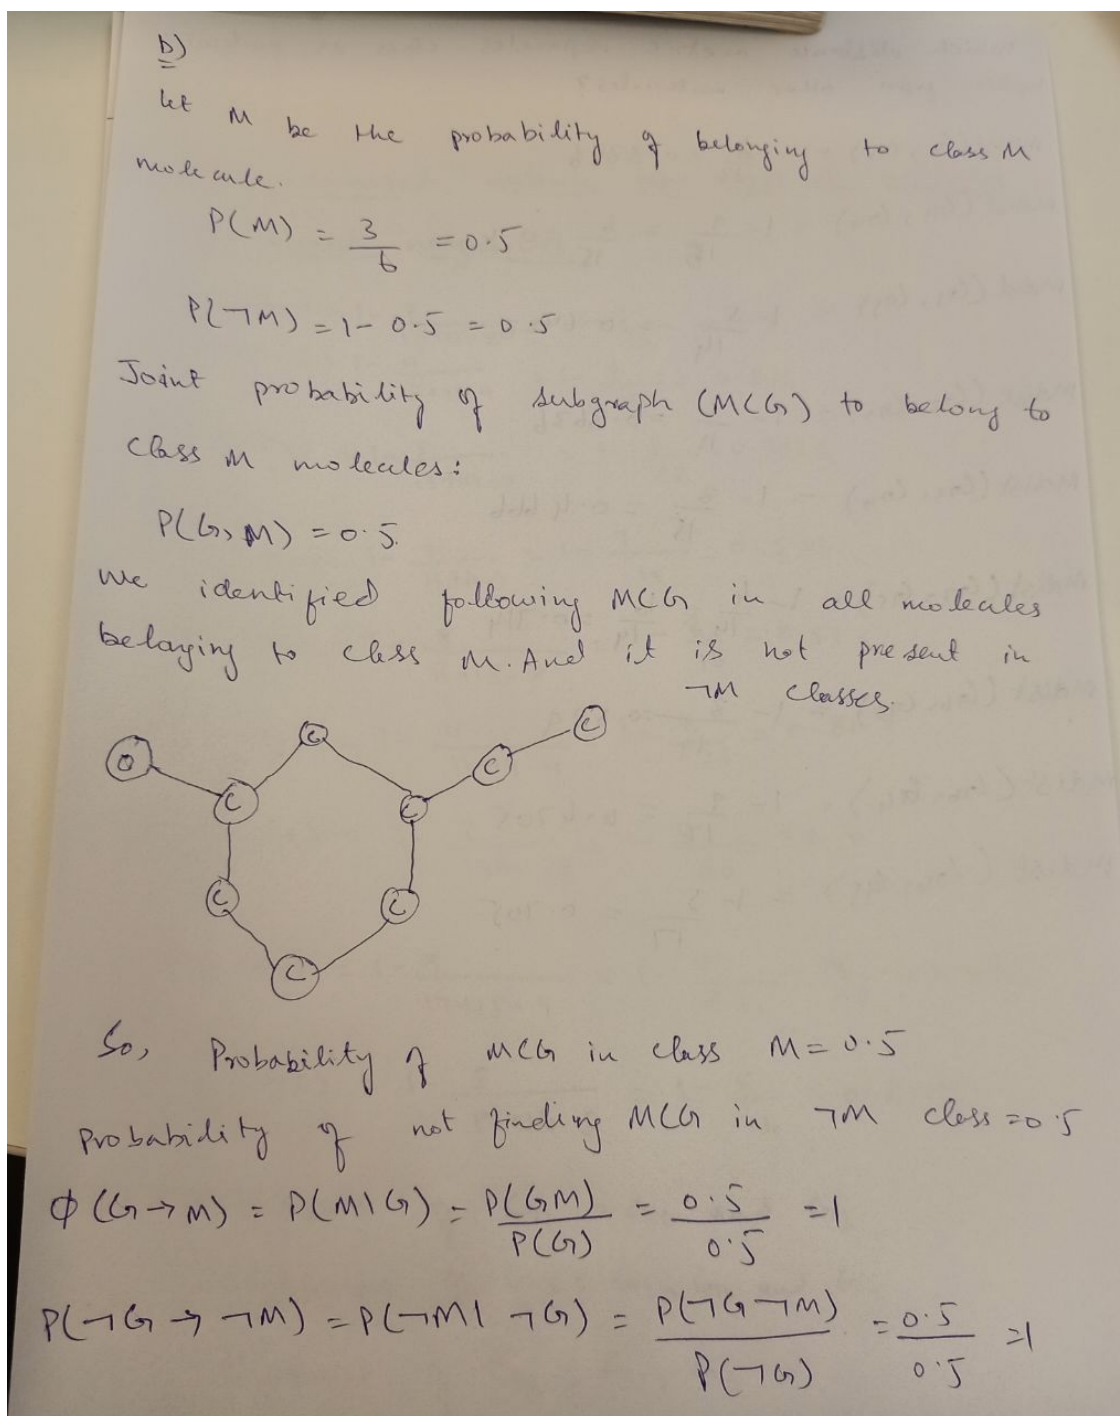 b)
Let M be the probability of belonging to class M
molecule.
P(M) = 3/6 = 0.5
P(¬M) = 1 - 0.5 = 0.5
Joint probability of subgraph (MCG) to belong to
class M molecules:
P(G, M) = 0.5
We identified following MCG in all molecules
belonging to class M. And it is not present in
¬M classes.
O C C C C
C C
C C
C
So, Probability of MCG in class M = 0.5
Probability of not finding MCG in ¬M class = 0.5
Φ (G → M) = P(M|G) = P(GM)/P(G) = 0.5/0.5 = 1
P(¬G → ¬M) = P(¬M| ¬G) = P(¬G¬M)/P(¬G) = 0.5/0.5 = 1